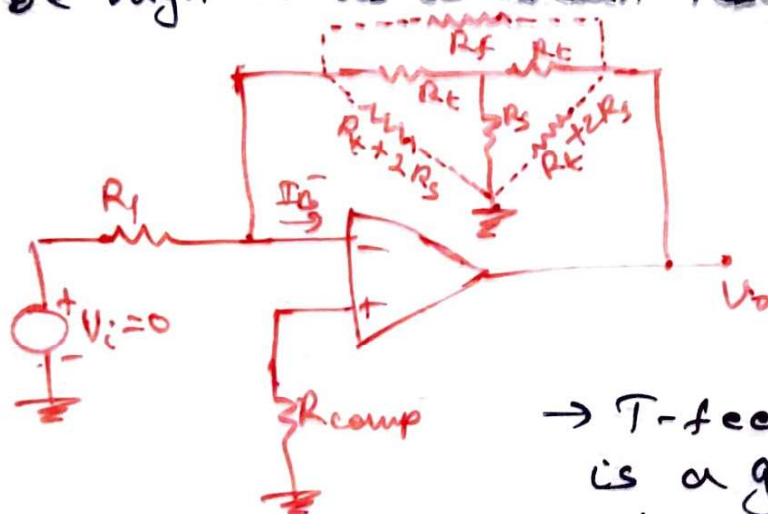 Rf
Rt
Rt
Rs
Rt + 2Rs
Rt + 2Rs
R1
IB-
−
+
+
Vi = 0
−
Vo
Rcomp
→ T-fee
is a g